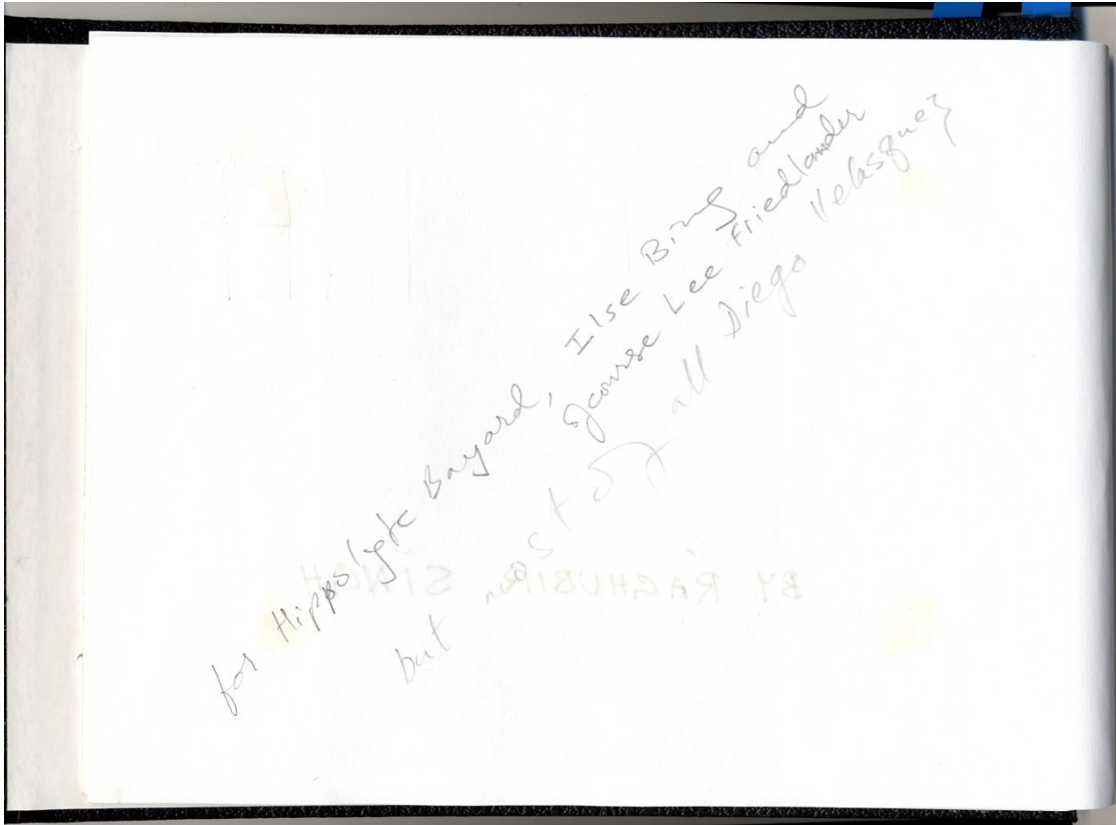 for Hippolyte Bayard, Ilse Bing and
ofcourse Lee Friedlander
but most of all Diego Velasquez
BY RAGHUBIR SINGH